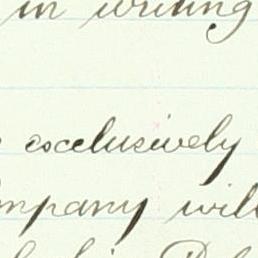 in writing
exclusively
mpany will